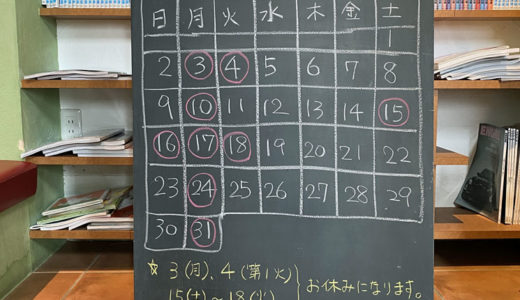 日 月 火 水 木 金 土
1
2 3 4 5 6 7 8
9 10 11 12 13 14 15
16 17 18 19 20 21 22
23 24 25 26 27 28 29
30 31
☆ 3(月)、4(第1火)
15(土)~18(火)
お休みになります。